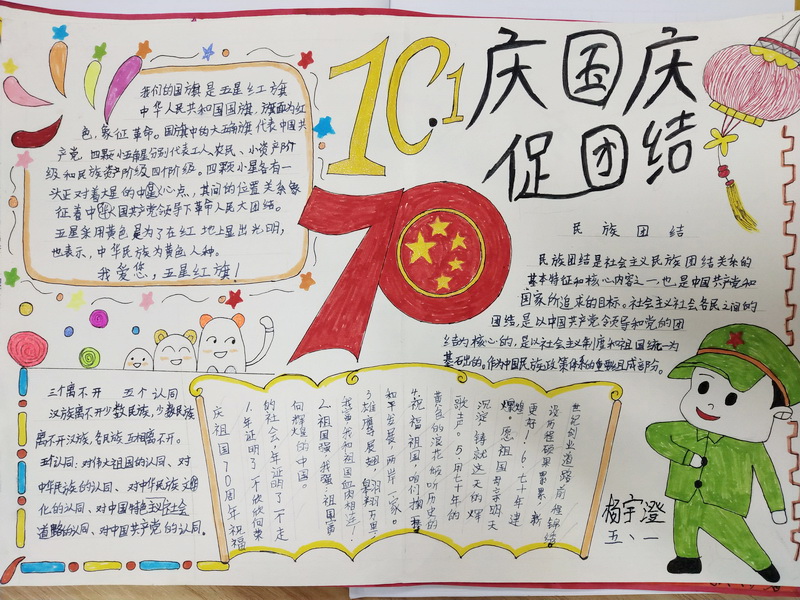 10.1
庆国庆
促团结
70
我们的国旗是五星红旗
中华人民共和国国旗,旗面为红
色,象征革命。国旗中的大五角旗代表中国共
产党,四颗小五角星分别代表工人、农民、小资产阶
级和民族资产阶级四个阶级。四颗小星各有一
头正对着大星的中心点,其间的位置关系象
征着中国共产党领导下革命人民大团结。
五星采用黄色是为了在红地上显出光明,
也表示,中华民族为黄色人种。
我爱您,五星红旗!
民族团结
民族团结是社会主义民族团结关系的
基本特征和核心内容之一.也是中国共产党和
国家所追求的目标。社会主义社会各民之间的
团结,是以中国共产党领导和党的团
结为核心的,是以社会主义制度和祖国统一为
基础的。作为中国民族政策体系的重要组成部分。
三个离不开 五个认同
汉族离不开少数民族,少数民族
离不开汉族,各民族互相离不开。
五认同:对伟大祖国的认同、对
中华民族的认同、对中华民族文化
化的认同、对中国特色主义社会
道路的认同、对中国共产党的认同。
庆祝国70周年祝福
1.年证明了一个欣欣向荣
的社会,年证明了一个走
向辉煌的中国
2.祖国强,我强,祖国富
我富,我和祖国血肉相连!
3.雄鹰展翅,翱翔万里
和平发展,两岸一家。
4.祝福祖国,咱们拥抱
黄色的浪花倾听历史的
歌声。5.用七十年的
沉淀,铸就这天的辉
煌,愿祖国母亲明天
更好!6.七十年建
设历程硕果累累,新
世纪创业道路前程锦绣
杨宇澄
五、一